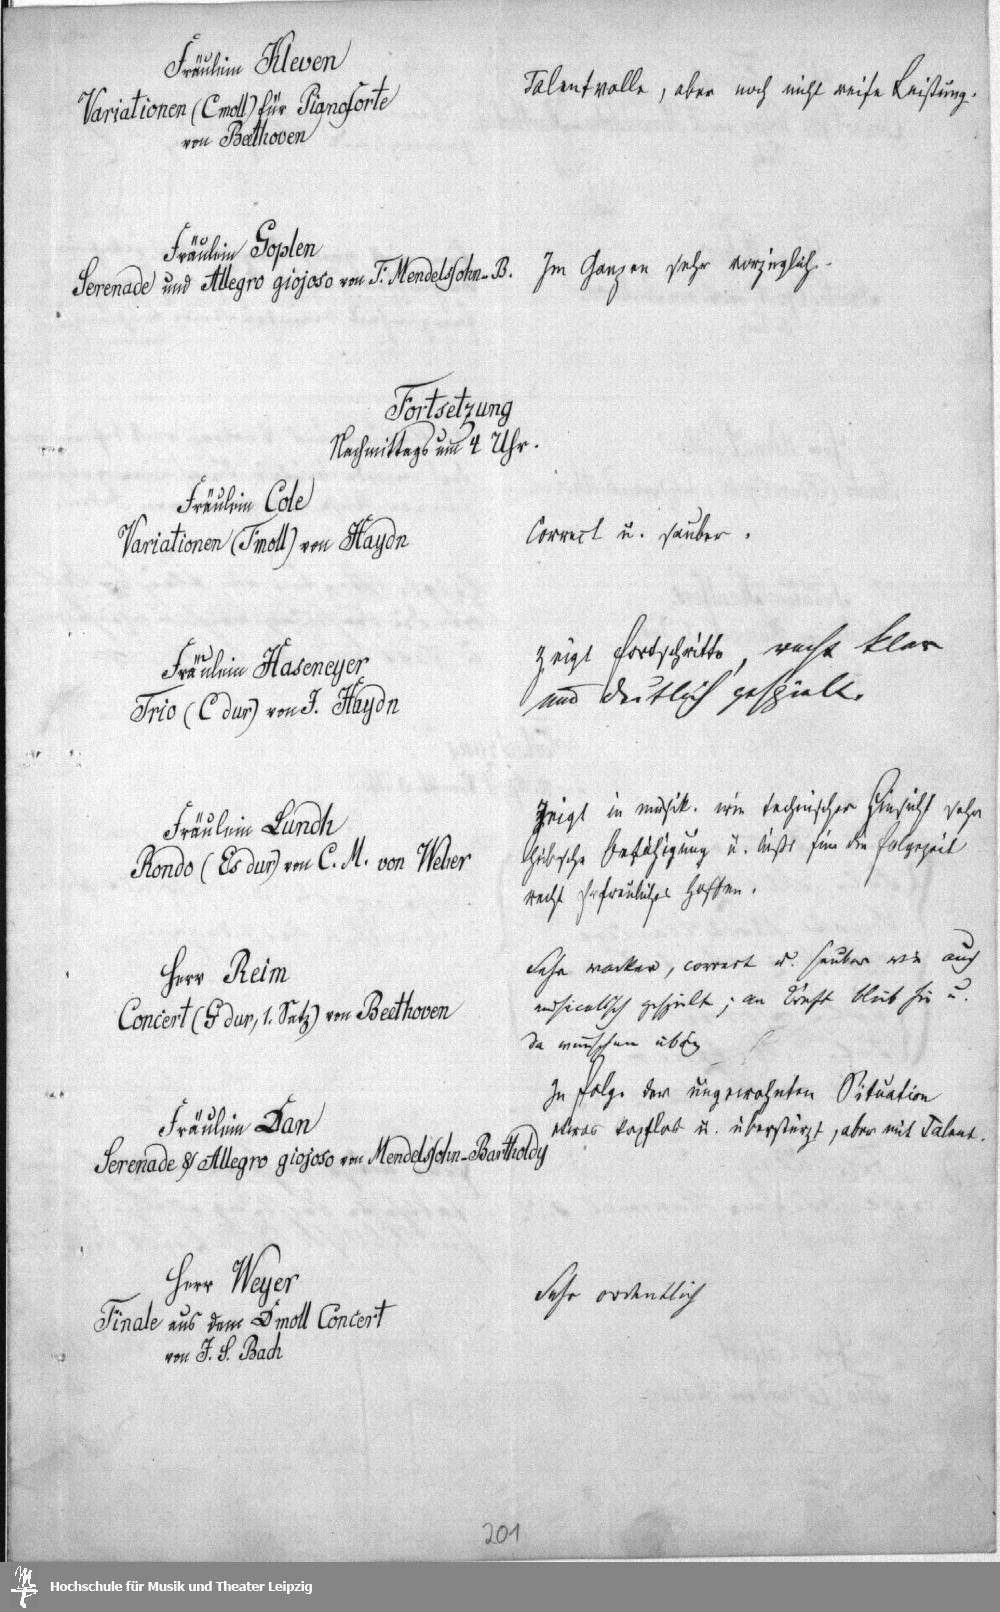 Fräulein Kleven
Variationen (C moll) für Pianoforte
von Beethoven
Talentvolle, aber noch nicht reife Leistung.
Fräulein Goplen
Serenade und Allegro giojoso von F. Mendelssohn-B.
Im Ganzen sehr vorzüglich.
Fortsetzung
Nachmittags um 4 Uhr.
Fräulein Cole
Variationen (F moll) von Haydn
Correct u. sauber.
Fräulein Hasemeyer
Trio (C dur) von J. Haydn
Zeigt Fortschritte, recht klar
und deutlich gespielt.
Fräulein Lundh
Rondo (Es dur) von C. M. von Weber
Zeigt in musik. wie technischer Hinsicht sehr
hübsche Befähigung u. lässt für die Folgezeit
recht Erfreuliches hoffen.
Herr Reim
Concert (G dur, 1. Satz) von Beethoven
Sehr wacker, correct u. sauber wie auch
musicalisch gespielt; an Kraft blieb hie u.
da wünschen übrig
Fräulein Dan
Serenade & Allegro giojoso von Mendelssohn-Bartholdy
In Folge der ungewohnten Situation
etwas kopflos u. überstürzt, aber mit Talent.
Herr Weyer
Finale aus dem D moll Concert
von J. S. Bach
Sehr ordentlich
201
Hochschule für Musik und Theater Leipzig